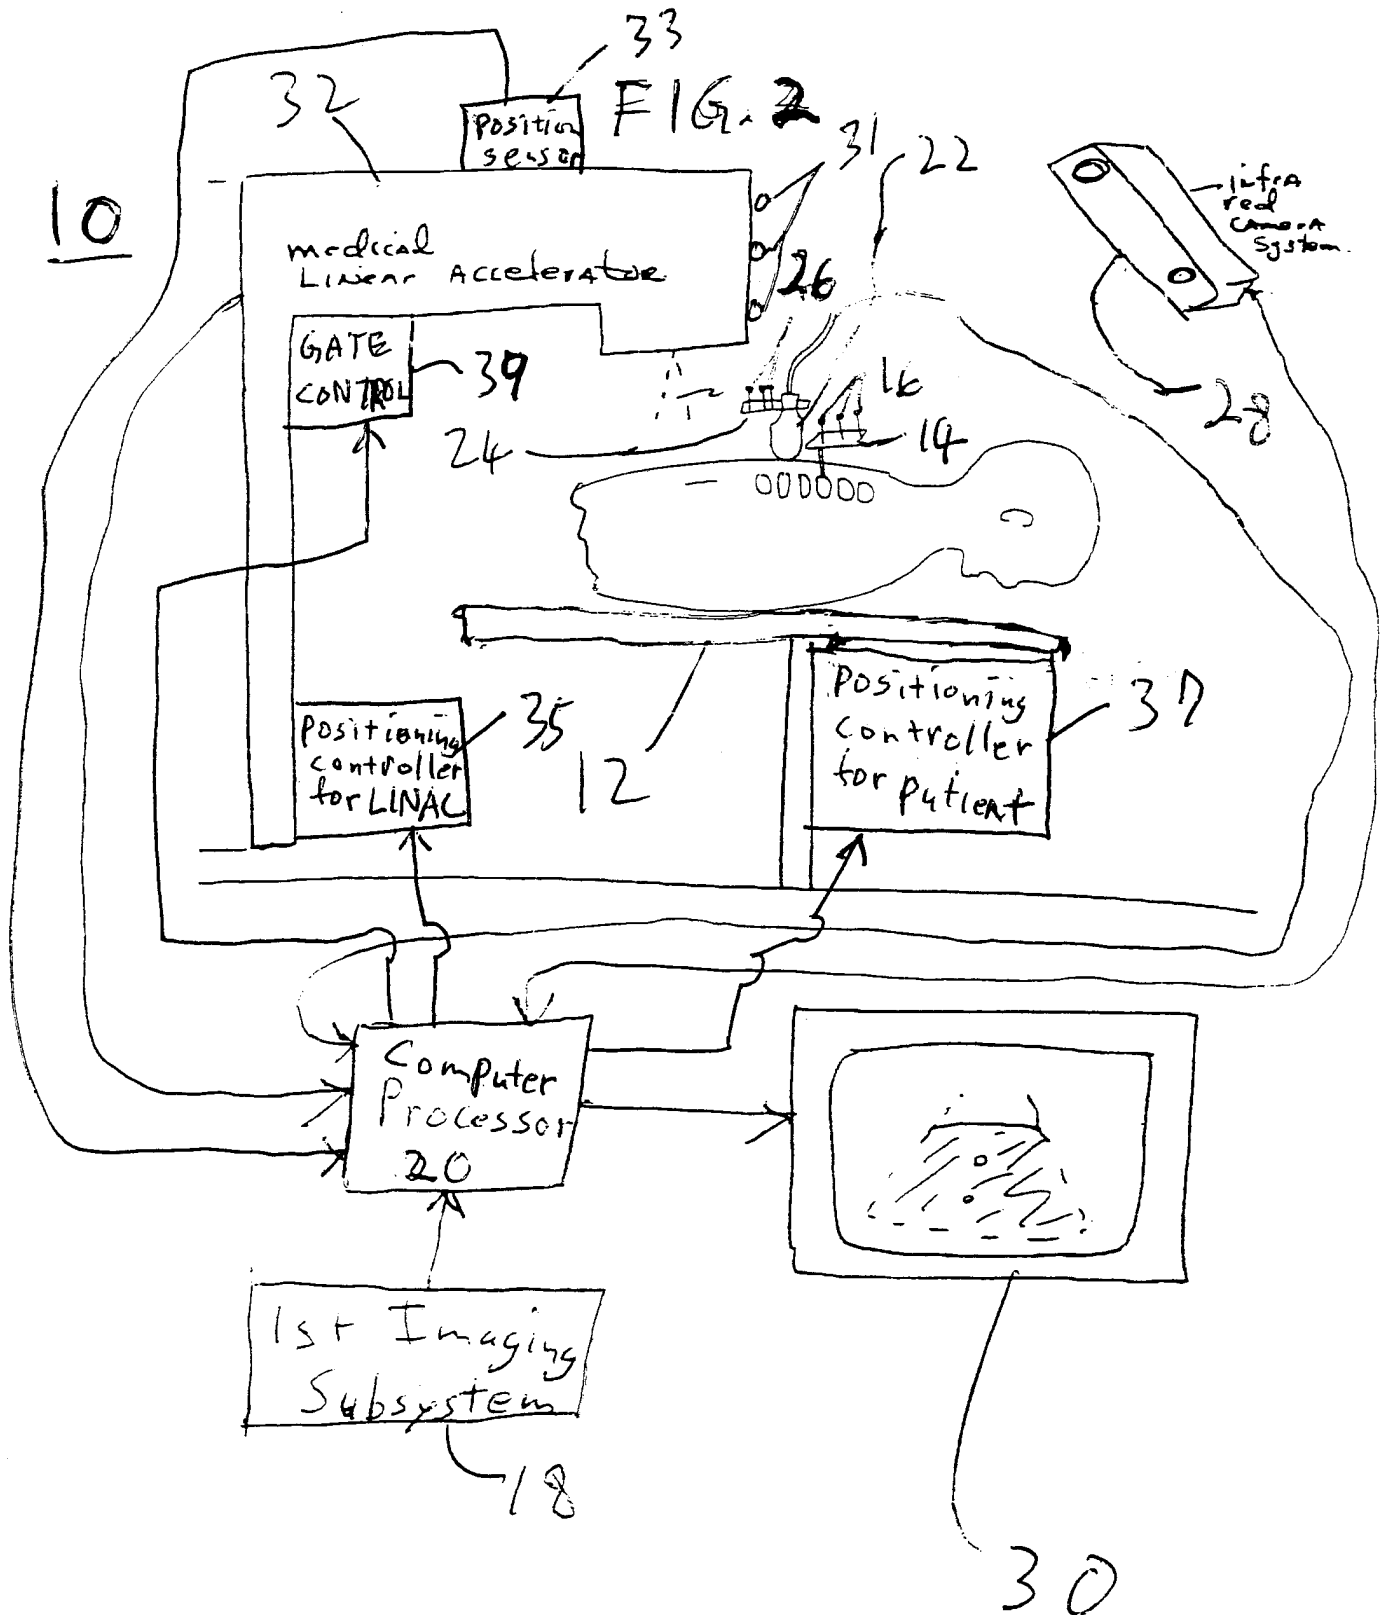 33
FIG. 2
32
Position
sensor
31
22
10
infra
red
camera
system.
medical
Linear Accelerator
26
GATE
CONTROL
39
16
28
24
14
Positioning
controller
for LINAC
35
12
Positioning
controller
for patient
37
Computer
Processor
20
1st Imaging
Subsystem
18
30